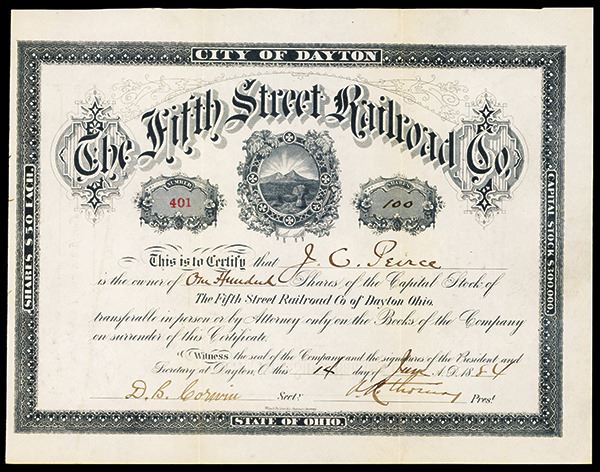 CITY OF DAYTON
The Fifth Street Railroad Co.
NUMBER
401
SHARES
100
SHARES $50 EACH.
CAPITAL STOCK $300,000.
This is to Certify that J. C. Peirce
is the owner of One Hundred Shares of the Capital Stock of
The Fifth Street Railroad Co of Dayton Ohio.
transferable in person or by Attorney only on the Books of the Company
on surrender of this Certificate.
Witness the seal of the Company and the signatures of the President and
Secretary at Dayton, O. this 14 day of A.D. 1884
D. B. Corwin Sect. Pres!
STATE OF OHIO.